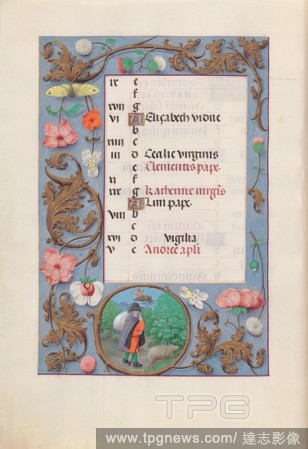 ix e
f
xvii g
vi A Elisabeth vidue
b
xiiii c
iii d Cecilie virginis
e Clementis pape.
xi f
xix g Katherine virgĩs
viii A Lini pape.
b
c
xvi d Vigilia
v e Andree apli
TPG
www.tpgnews.com/ 達志影像